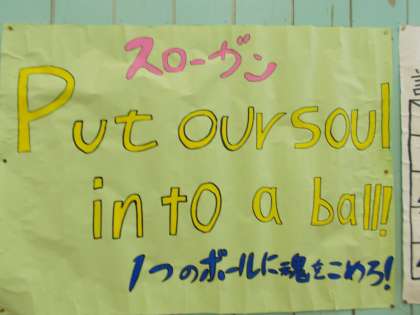 スローガン
Put our soul
into a ball!!
1つのボールに魂をこめろ!